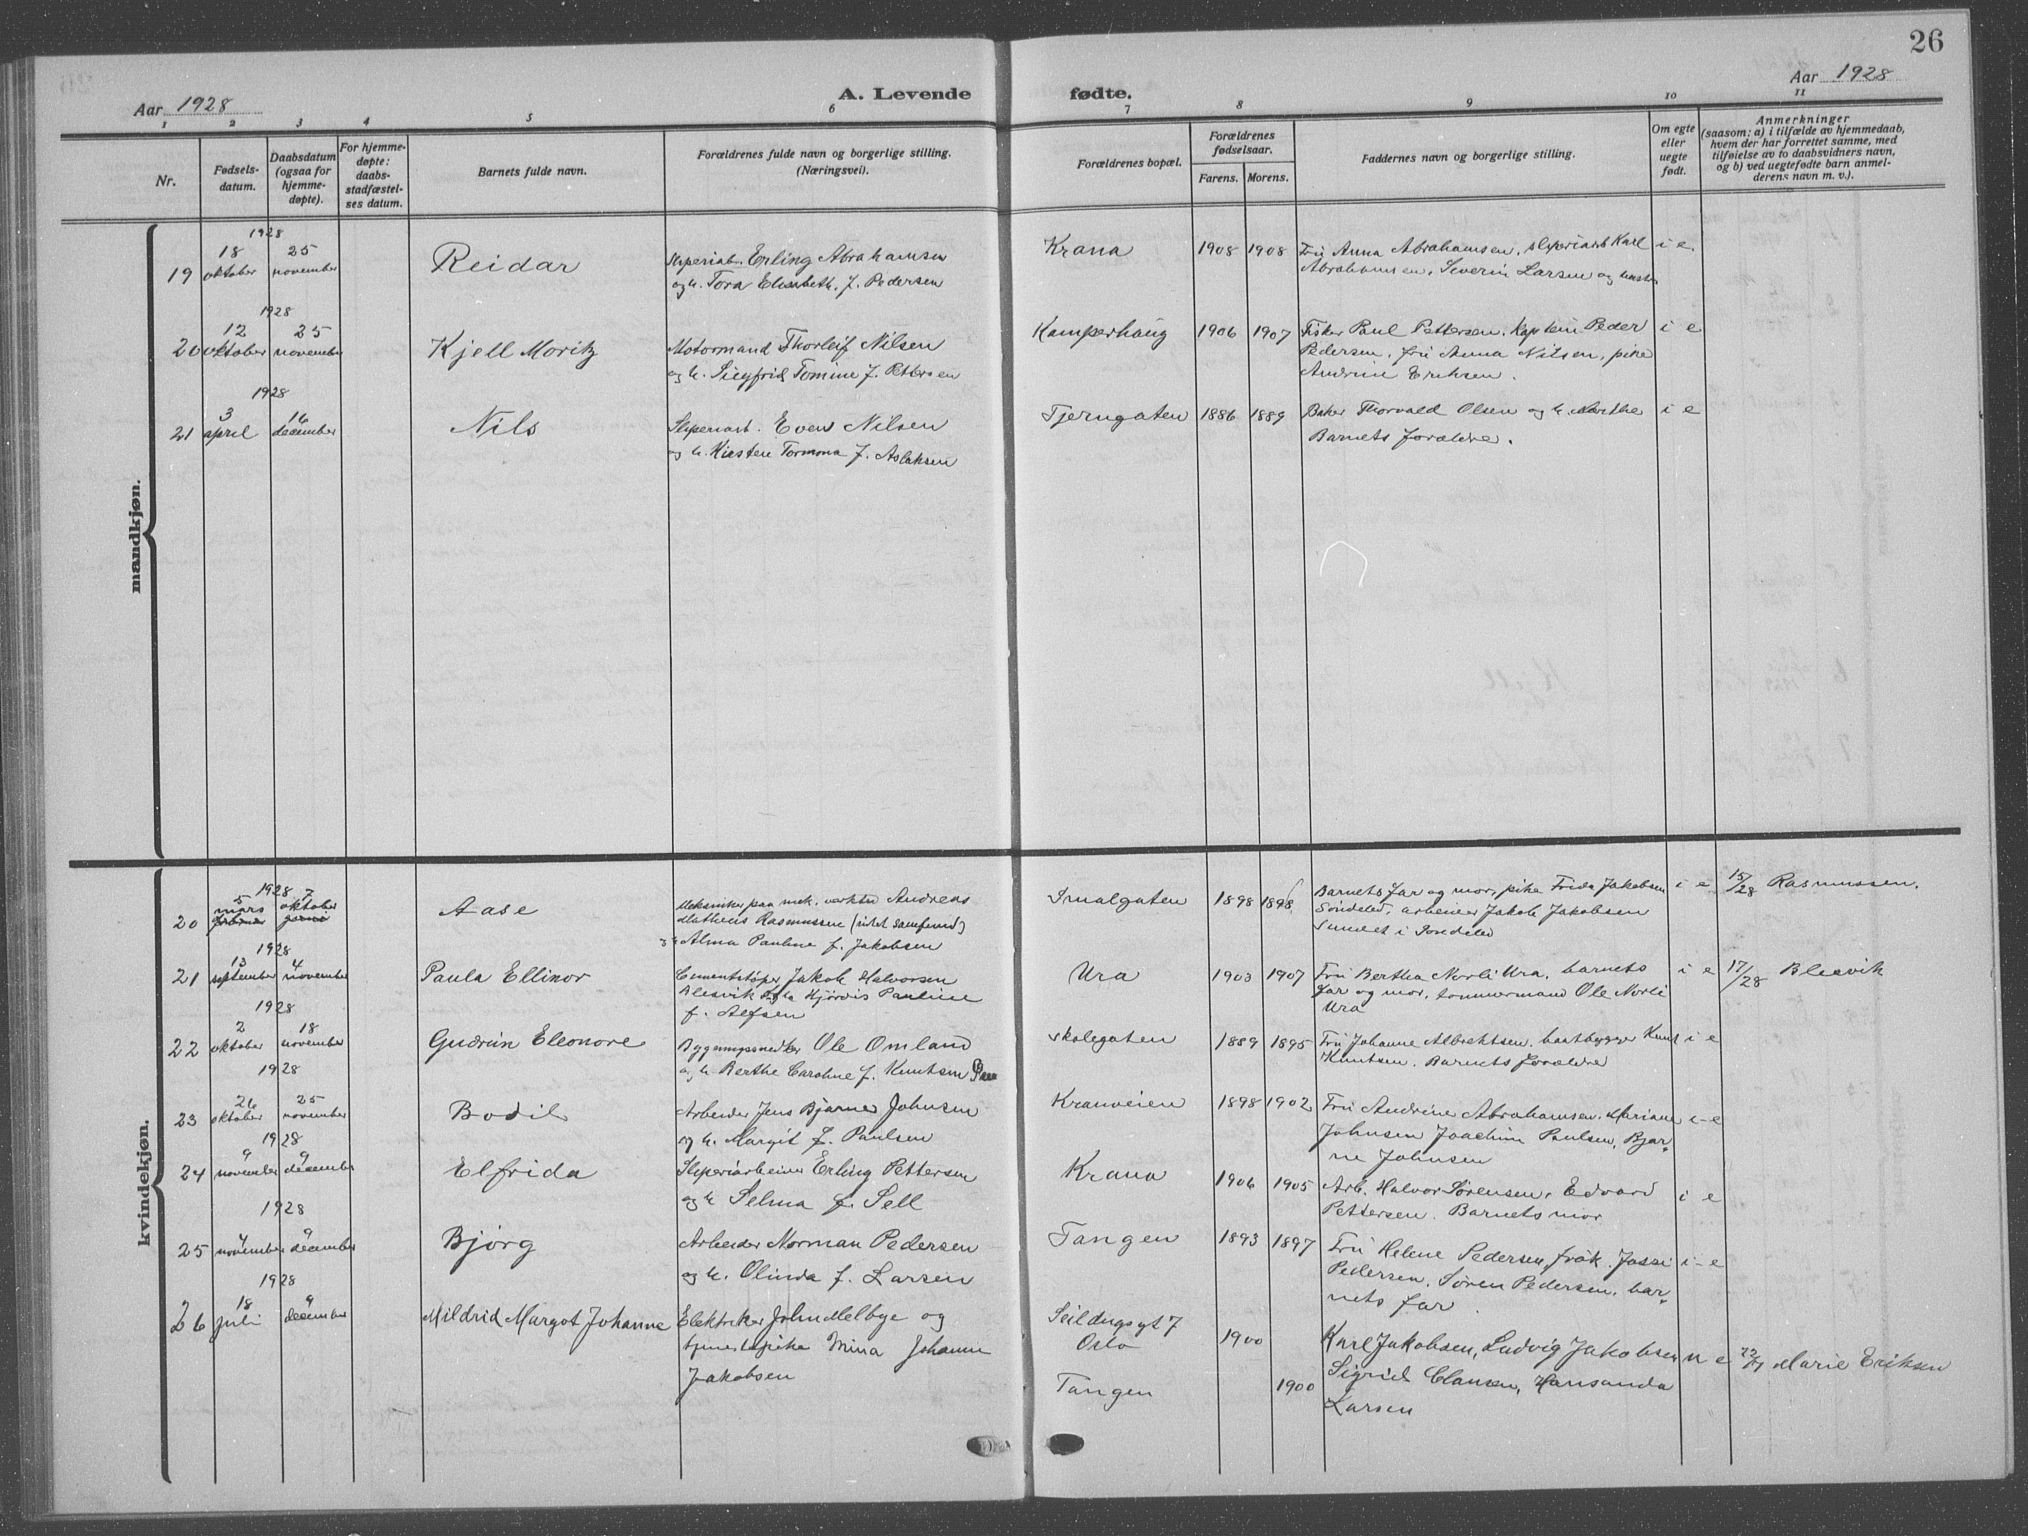 26
Aar 1928
A. Levende
fødte.
Aar 1928
1 2 3 4 5 6 7 8 9 10 11
Nr.
Fødsels-
datum.
Daabsdatum
(ogsaa for
hjemme-
døpte).
For hjemme-
døpte:
daabs-
stadfæstel-
ses datum.
Barnets fulde navn.
Forældrenes fulde navn og borgerlige stilling.
(Næringsvei).
Forældrenes bopæl.
Forældrenes
fødselsaar.
Farens. Morens.
Faddernes navn og borgerlige stilling.
Om egte
eller
uegte
født.
Anmerkninger
(saasom: a) i tilfælde av hjemmedaab,
hvem der har forrettet samme, med
tilføielse av to daabsvidners navn,
og b) ved uegtefødte barn anmel-
derens navn m. v.).
mandkjøn.
1928
19 18 oktober 25 november Reidar
Sliperiarb. Erling Abrahamsen
og h. Tora Elisabeth f. Pedersen
Krana 1908 1908
Fru Anna Abrahamsen, sliperiarb Karl
Abrahamsen, Severin Larsen og hustr
i e.
1928
20 12 oktober 25 november Kjell Moritz
Motormand Thorleif Nilsen
og h. Siegfrid Tomine f. Pettersen
Kamperhaug 1906 1907
Fisker Paul Pettersen, Kaptein Peder
Pedersen, fru Anna Nilsen, pike
Andrine Eriksen.
i e
1928
21 3 april 16 december Nils
Sliperiarb. Even Nilsen
og h. Kirsten Tormona f. Aslaksen
Tjerngaten 1886 1889
Baker Thorvald Olsen og h. Marthe
Barnets forældre.
i e
kvindekjøn.
1928
20 5 mars 7 oktober Aase
Mekaniker paa mek. verksted Andreas
Matheus Rasmussen (utet samfund)
og h Alma Pauline f. Jakobsen
Smalgaten 1898 1898
Barnets far og mor, pike Frida Jakobsen
Söndeled, arbeider Jakob Jakobsen
Sundet i Söndeled
i e 15/28 Rasmussen.
1928
21 13 september 4 november Paula Ellinor
Cementstøper Jakob Halvorsen
Blesvik og h Hjördis Pauline
f. Alfsen
Ura 1903 1907
Fru Bertha Norli Ura, barnets
far og mor, tømmermand Ole Norli
Ura
i e 17/28 Blesvik
1928
22 2 oktober 18 november Gudrun Eleonore
Bygningssnedker Ole Omland
og h Berthe Caroline f. Knutsen
Skolegaten 1889 1895
Fru Johanne Albrektsen, baatbygger Knut
Knutsen. Barnets forældre
i e
1928
23 26 oktober 25 november Bodil
Arbeider Jens Bjarne Johnsen
og h. Margit f. Paulsen
Kranveien 1898 1902
Fru Andrine Abrahamsen, Mariane
Johnsen Joachim Paulsen, Bjar-
ne Johnsen
i-e
1928
24 9 november 9 december Elfrida
Sliperiarbeider Erling Pettersen
og h Selma f. Sell
Krana 1906 1905
Arb. Halvor Sörensen, Edvard
Pettersen. Barnets mor
i e
1928
25 4 november 9 december Bjørg
Arbeider Norman Pedersen
og h. Olinda f. Larsen
Tangen 1893 1897
Fru Helene Pedersen, frøk. Jossi
Pedersen, Søren Pedersen, bar-
nets far.
i-e
1928
26 18 juli 9 december Mildrid Margot Johanne
Elektriker John Melbye og
tjenestepike Mina Johanne
Jakobsen
Seildugsgt 7
Oslo 1900
Tangen 1900
Karl Jakobsen, Ludvig Jakobsen
Sigrid Clausen, Hansanda
Larsen
u e Marie Eriksen